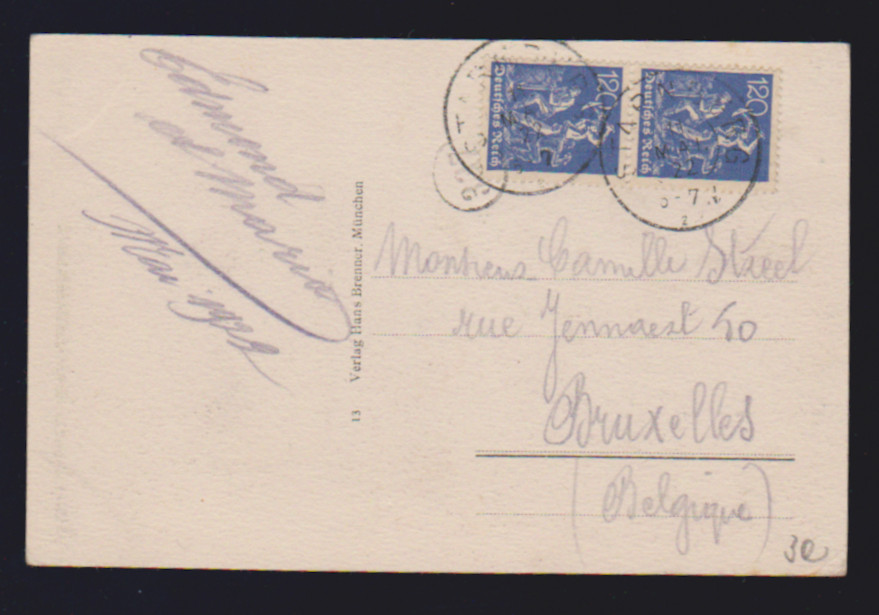 Edmond
et Maria
Mai 1922
13 Verlag Hans Brenner, München
120
Deutsches Reich
120
Deutsches Reich
Monsieur Camille Streel
rue Jennaest 50
Bruxelles
(Belgique)
30